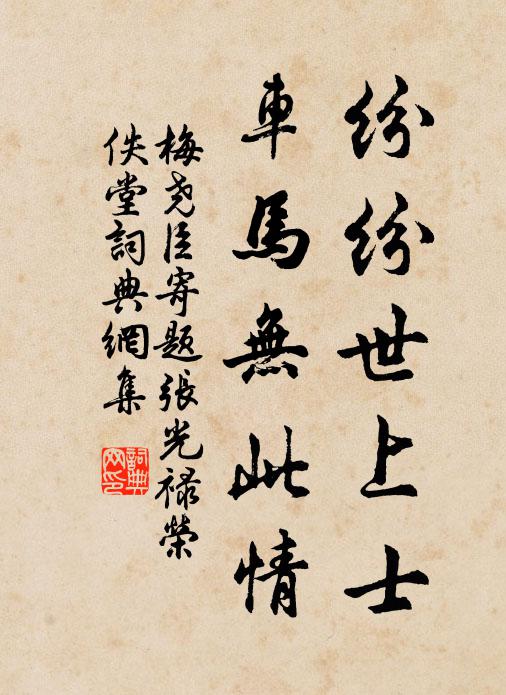 紛紛世上士
車馬無此情
梅堯臣寄題張光祿榮
佚堂詞典網集
詞典网印